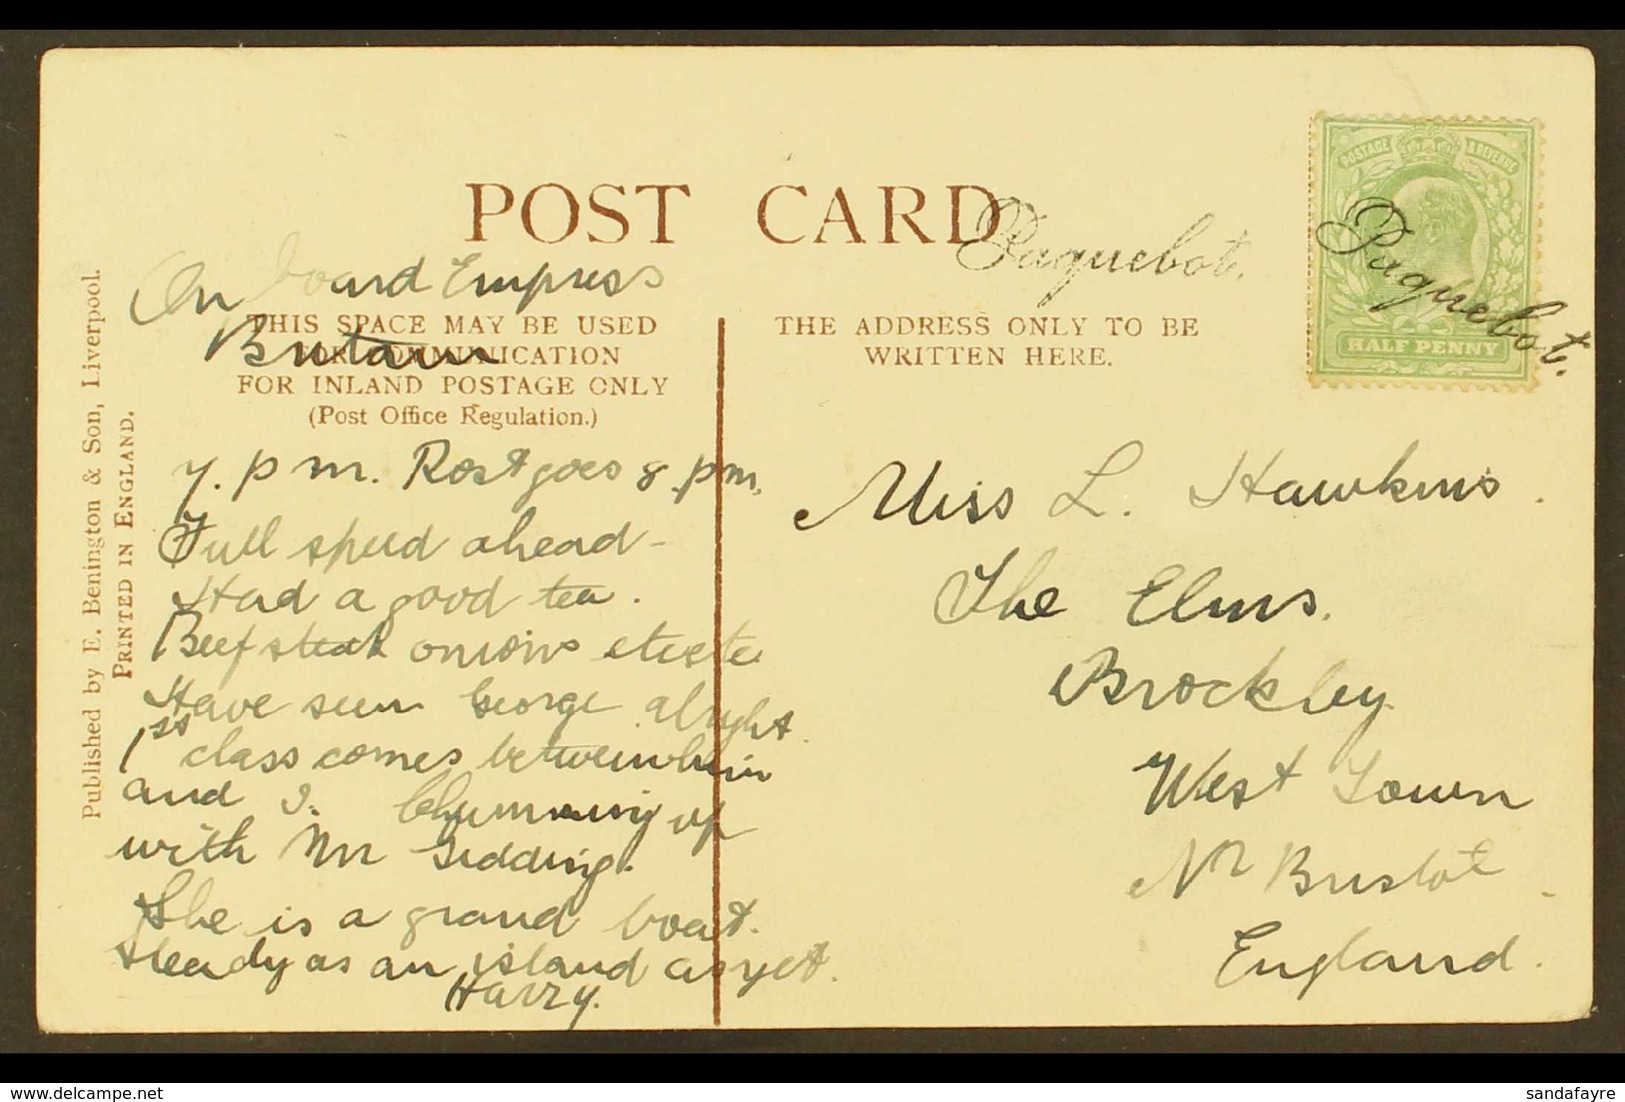 POST CARD
Paquebot.
Paquebot.
POSTAGE & REVENUE
HALF PENNY
Published by E. Benington & Son, Liverpool.
PRINTED IN ENGLAND.
On board Empress
Britain
THIS SPACE MAY BE USED
FOR COMMUNICATION
FOR INLAND POSTAGE ONLY
(Post Office Regulation.)
7. p m. Post goes 8. pm.
Full speed ahead -
Had a good tea.
Beef steak onions
Have seen George alright.
1st class comes between him
and I. Chumming up
with Mr Gidding.
She is a grand boat.
steady as an island as yet.
Harry.
THE ADDRESS ONLY TO BE
WRITTEN HERE.
Miss L. Hawkins.
The Elms.
Brockley
West Town
Nr Bristol
England.
delcampe.net
sandafayre